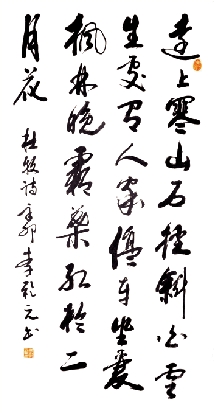 遠上寒山石徑斜白雲
生處有人家停車坐愛
楓林晚霜葉紅於二
月花
杜牧詩辛卯李元书